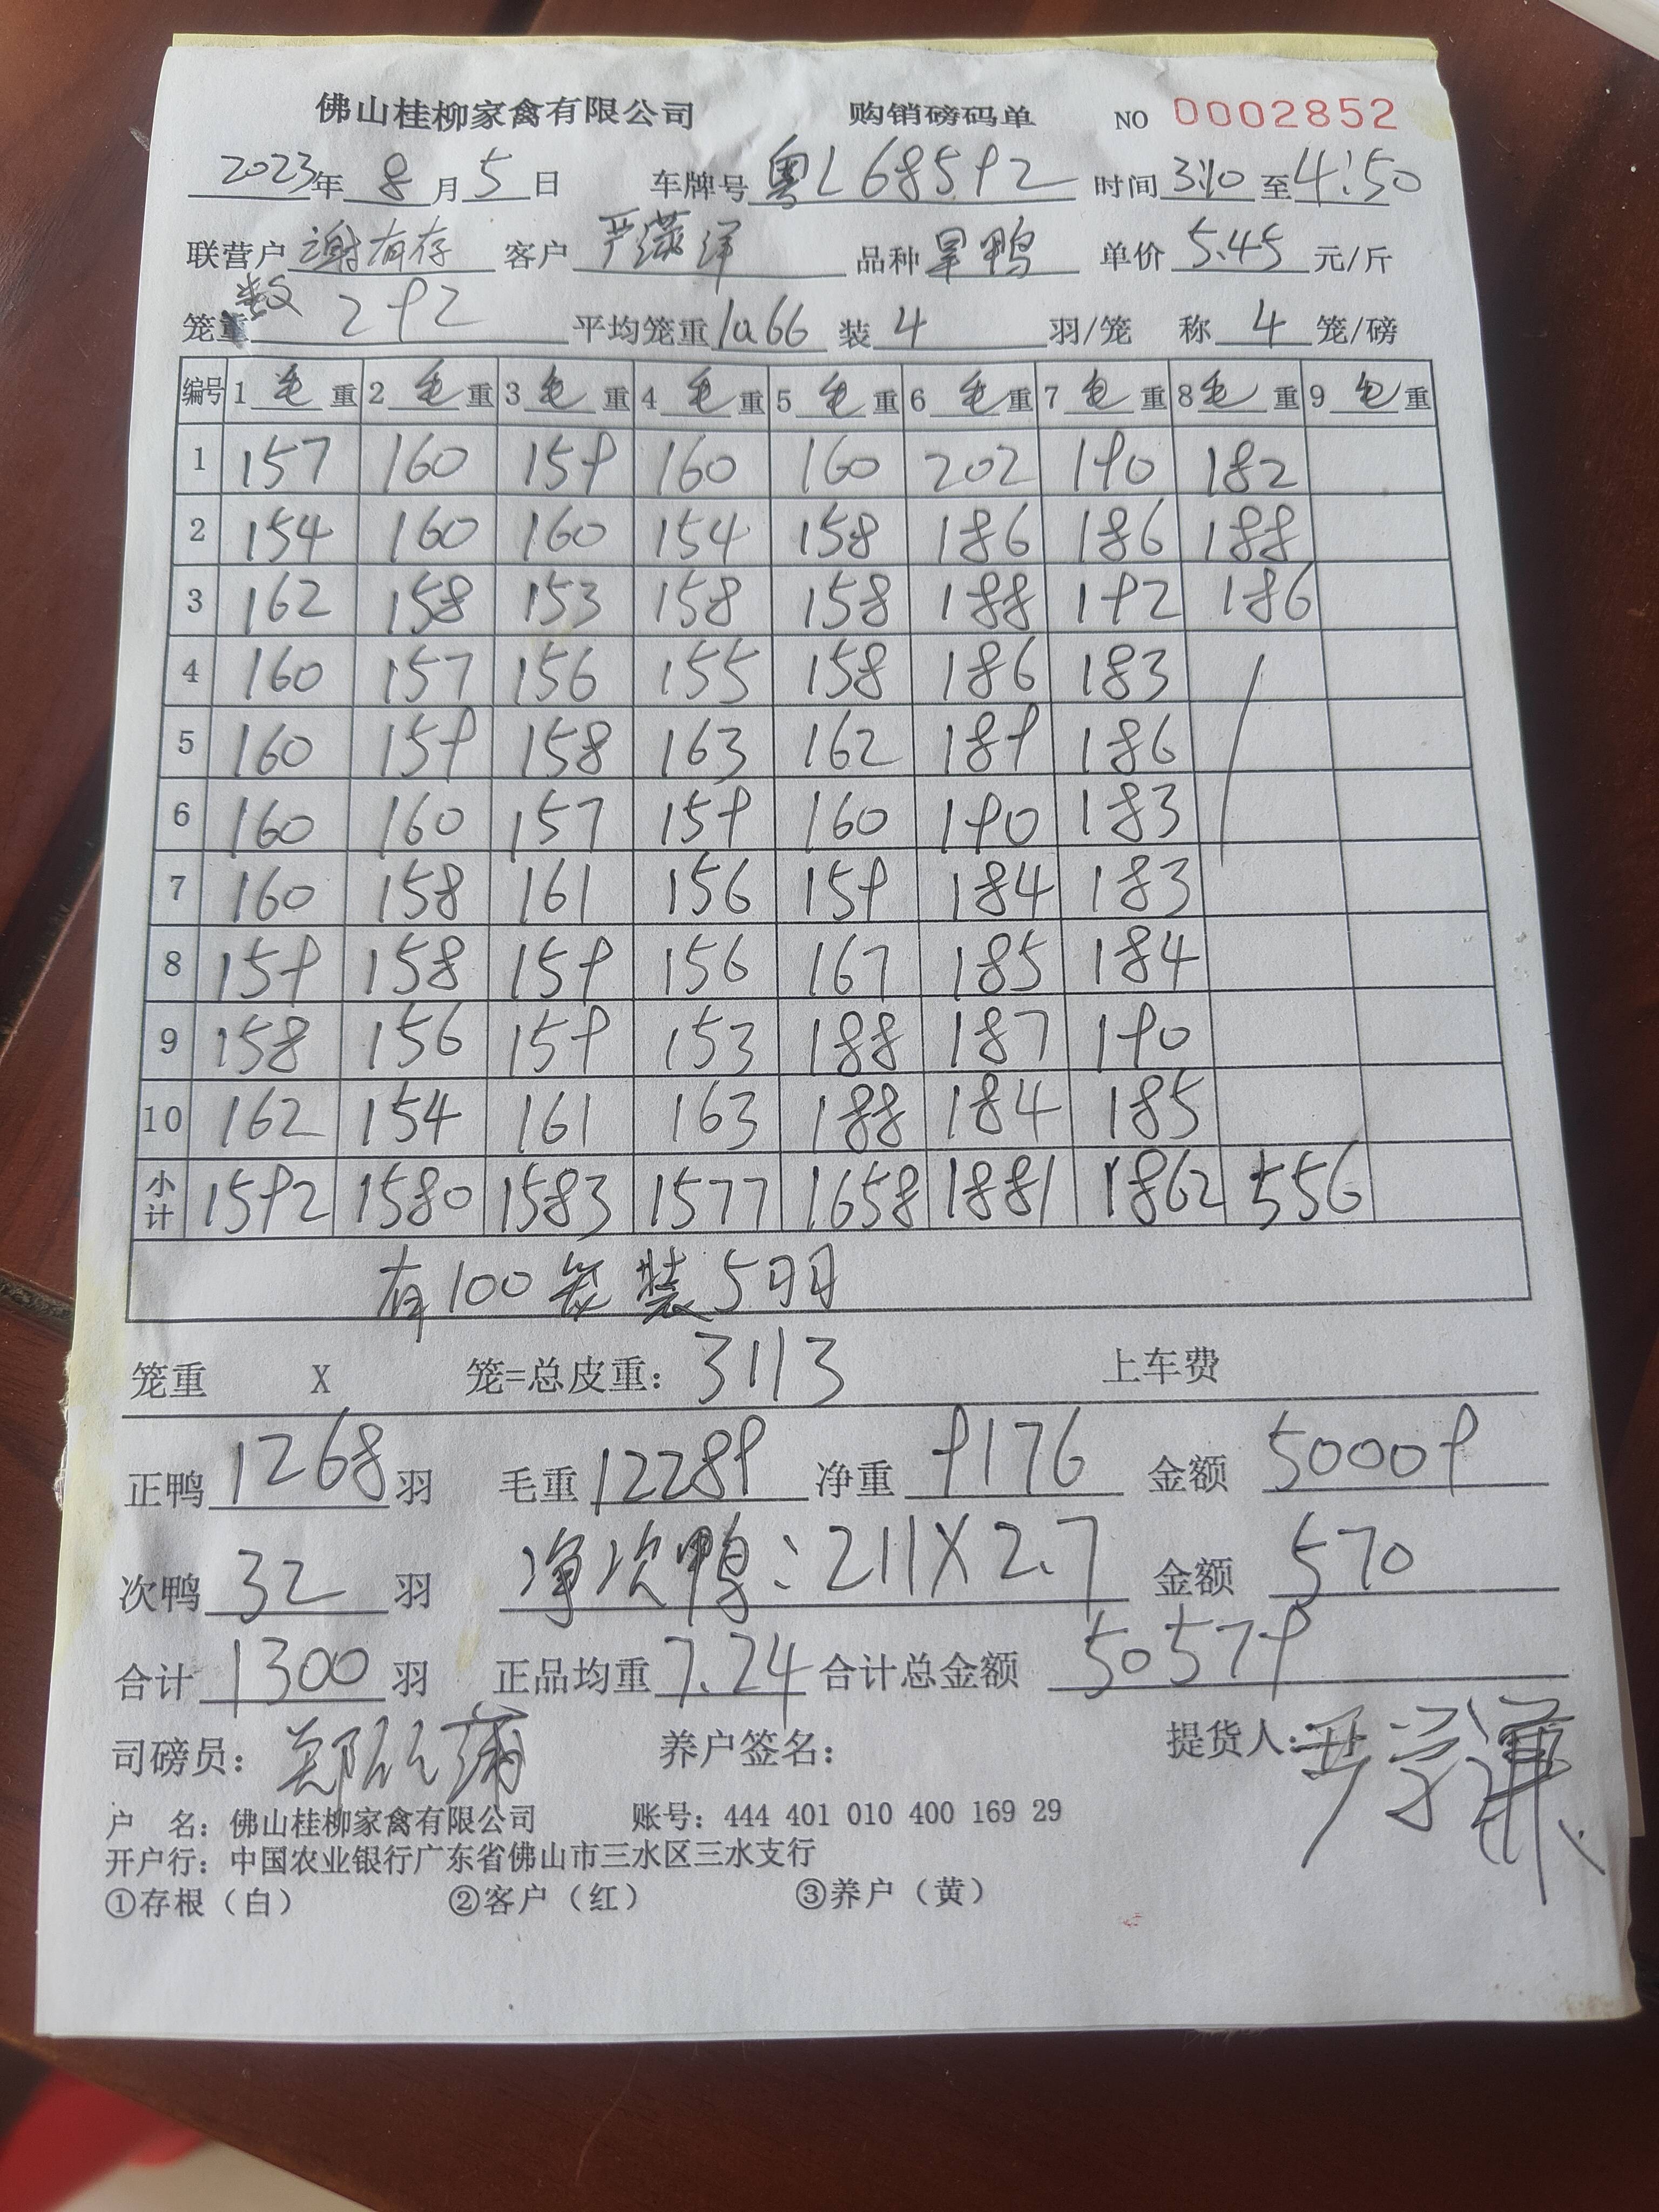 佛山桂柳家禽有限公司 购销磅码单 NO 0002852
2023年 8月5日 车牌号 粤L68592 时间 3:10 至 4:50
联营户 谢有存 客户 严潇洋 品种 旱鸭 单价 5.45 元/斤
笼数 292 平均笼重 10.66 装 4 羽/笼 称 4 笼/磅
编号 1 毛 重 2 毛 重 3 毛 重 4 毛 重 5 毛 重 6 毛 重 7 毛 重 8 毛 重 9 毛 重
1 157 160 159 160 160 202 190 182
2 154 160 160 154 158 186 186 188
3 162 158 153 158 158 188 192 186
4 160 157 156 155 158 186 183
5 160 159 158 163 162 189 186
6 160 160 157 159 160 190 183
7 160 158 161 156 159 184 183
8 159 158 159 156 167 185 184
9 158 156 159 153 188 187 190
10 162 154 161 163 188 184 185
小计 1592 1580 1583 1577 1658 1881 1862 556
有100笼装5羽
笼重 X 笼=总皮重: 3113 上车费
正鸭 1268 羽 毛重 12289 净重 9176 金额 50009
次鸭 32 羽 净次鸭:211X2.7 金额 570
合计 1300 羽 正品均重 7.24 合计总金额 50579
司磅员: 养户签名: 提货人:
户 名: 佛山桂柳家禽有限公司 账号: 444 401 010 400 169 29
开户行: 中国农业银行广东省佛山市三水区三水支行
①存根(白) ②客户(红) ③养户(黄)